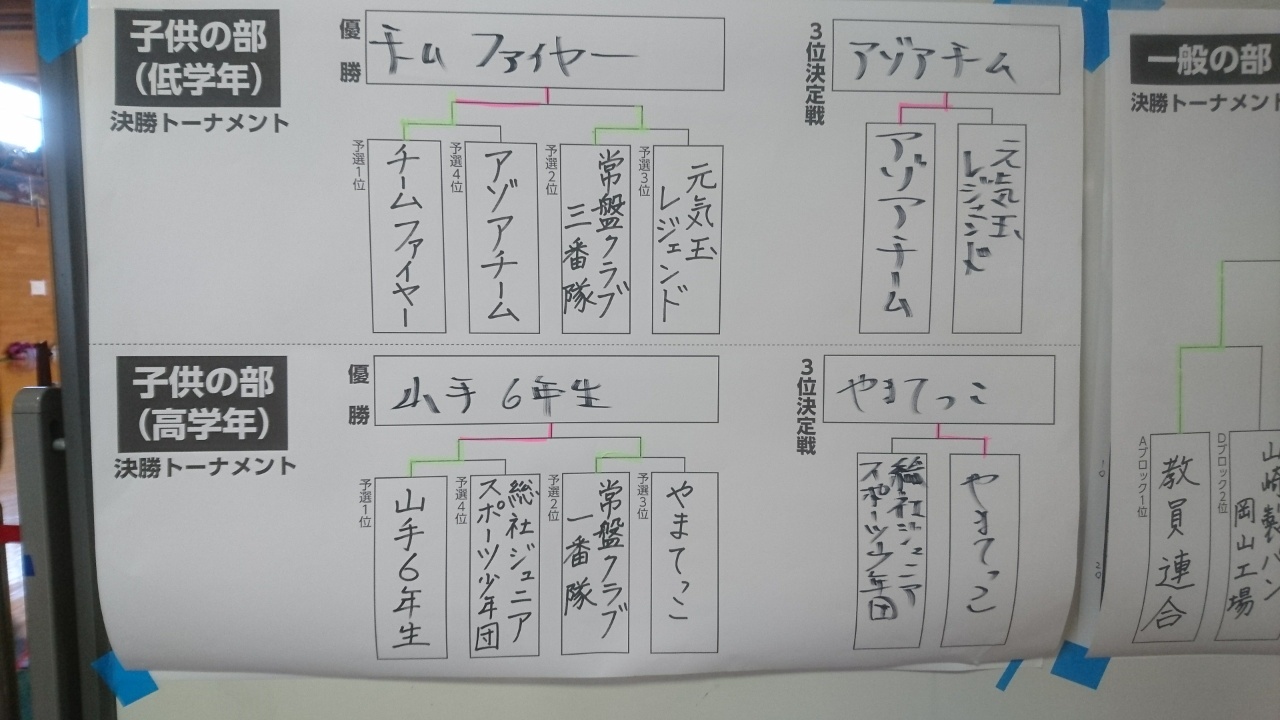 子供の部
(低学年)
決勝トーナメント
優勝
チム ファイヤー
予選1位
チームファイヤー
予選4位
アゾアチーム
予選2位
常盤クラブ
三番隊
予選3位
元気玉
レジェンド
3位決定戦
アゾアチーム
アゾアチーム
元気玉
レジェンド
子供の部
(高学年)
決勝トーナメント
優勝
山手 6年生
予選1位
山手6年生
予選4位
総社ジュニア
スポーツ少年団
予選2位
常盤クラブ
一番隊
予選3位
やまてっこ
3位決定戦
やまてっこ
総社ジュニア
スポーツ少年団
やまてっこ
一般の部
決勝トーナメント
Aブロック1位
教員連合
Dブロック2位
山崎製パン
岡山工場